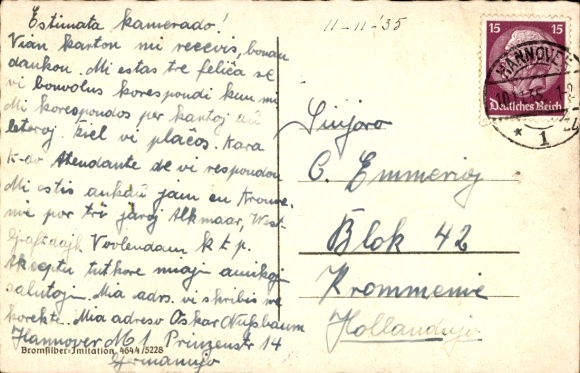 Estimata kamerado!
Vian karton mi recevis, bonan
dankon. Mi estas tre feliĉa se
vi bonvolus korespondi kun mi
Mi korespondos per kartoj aŭ
leteroj. kiel vi plaĉos. Kara
K-ao Atendante de vi respondon
Mi estis ankaŭ jam en
por tri jaroj Alkmaar, West
Voolendam k t p.
Akceptu tutkore miajn amikajn
salutojn. Mia adrs. vi skribis ne
korekte. Mia adreso Oskar Nußbaum
Hannover M 1 Prinzenstr 14
Germanujo
Bromsilber-Imitation 4644/5228
11-11-'35
15 15
Deutsches Reich
HANNOVER
* 1
Sinjoro
C. Emmerig
Blok 42
Krommenie
Hollandujo